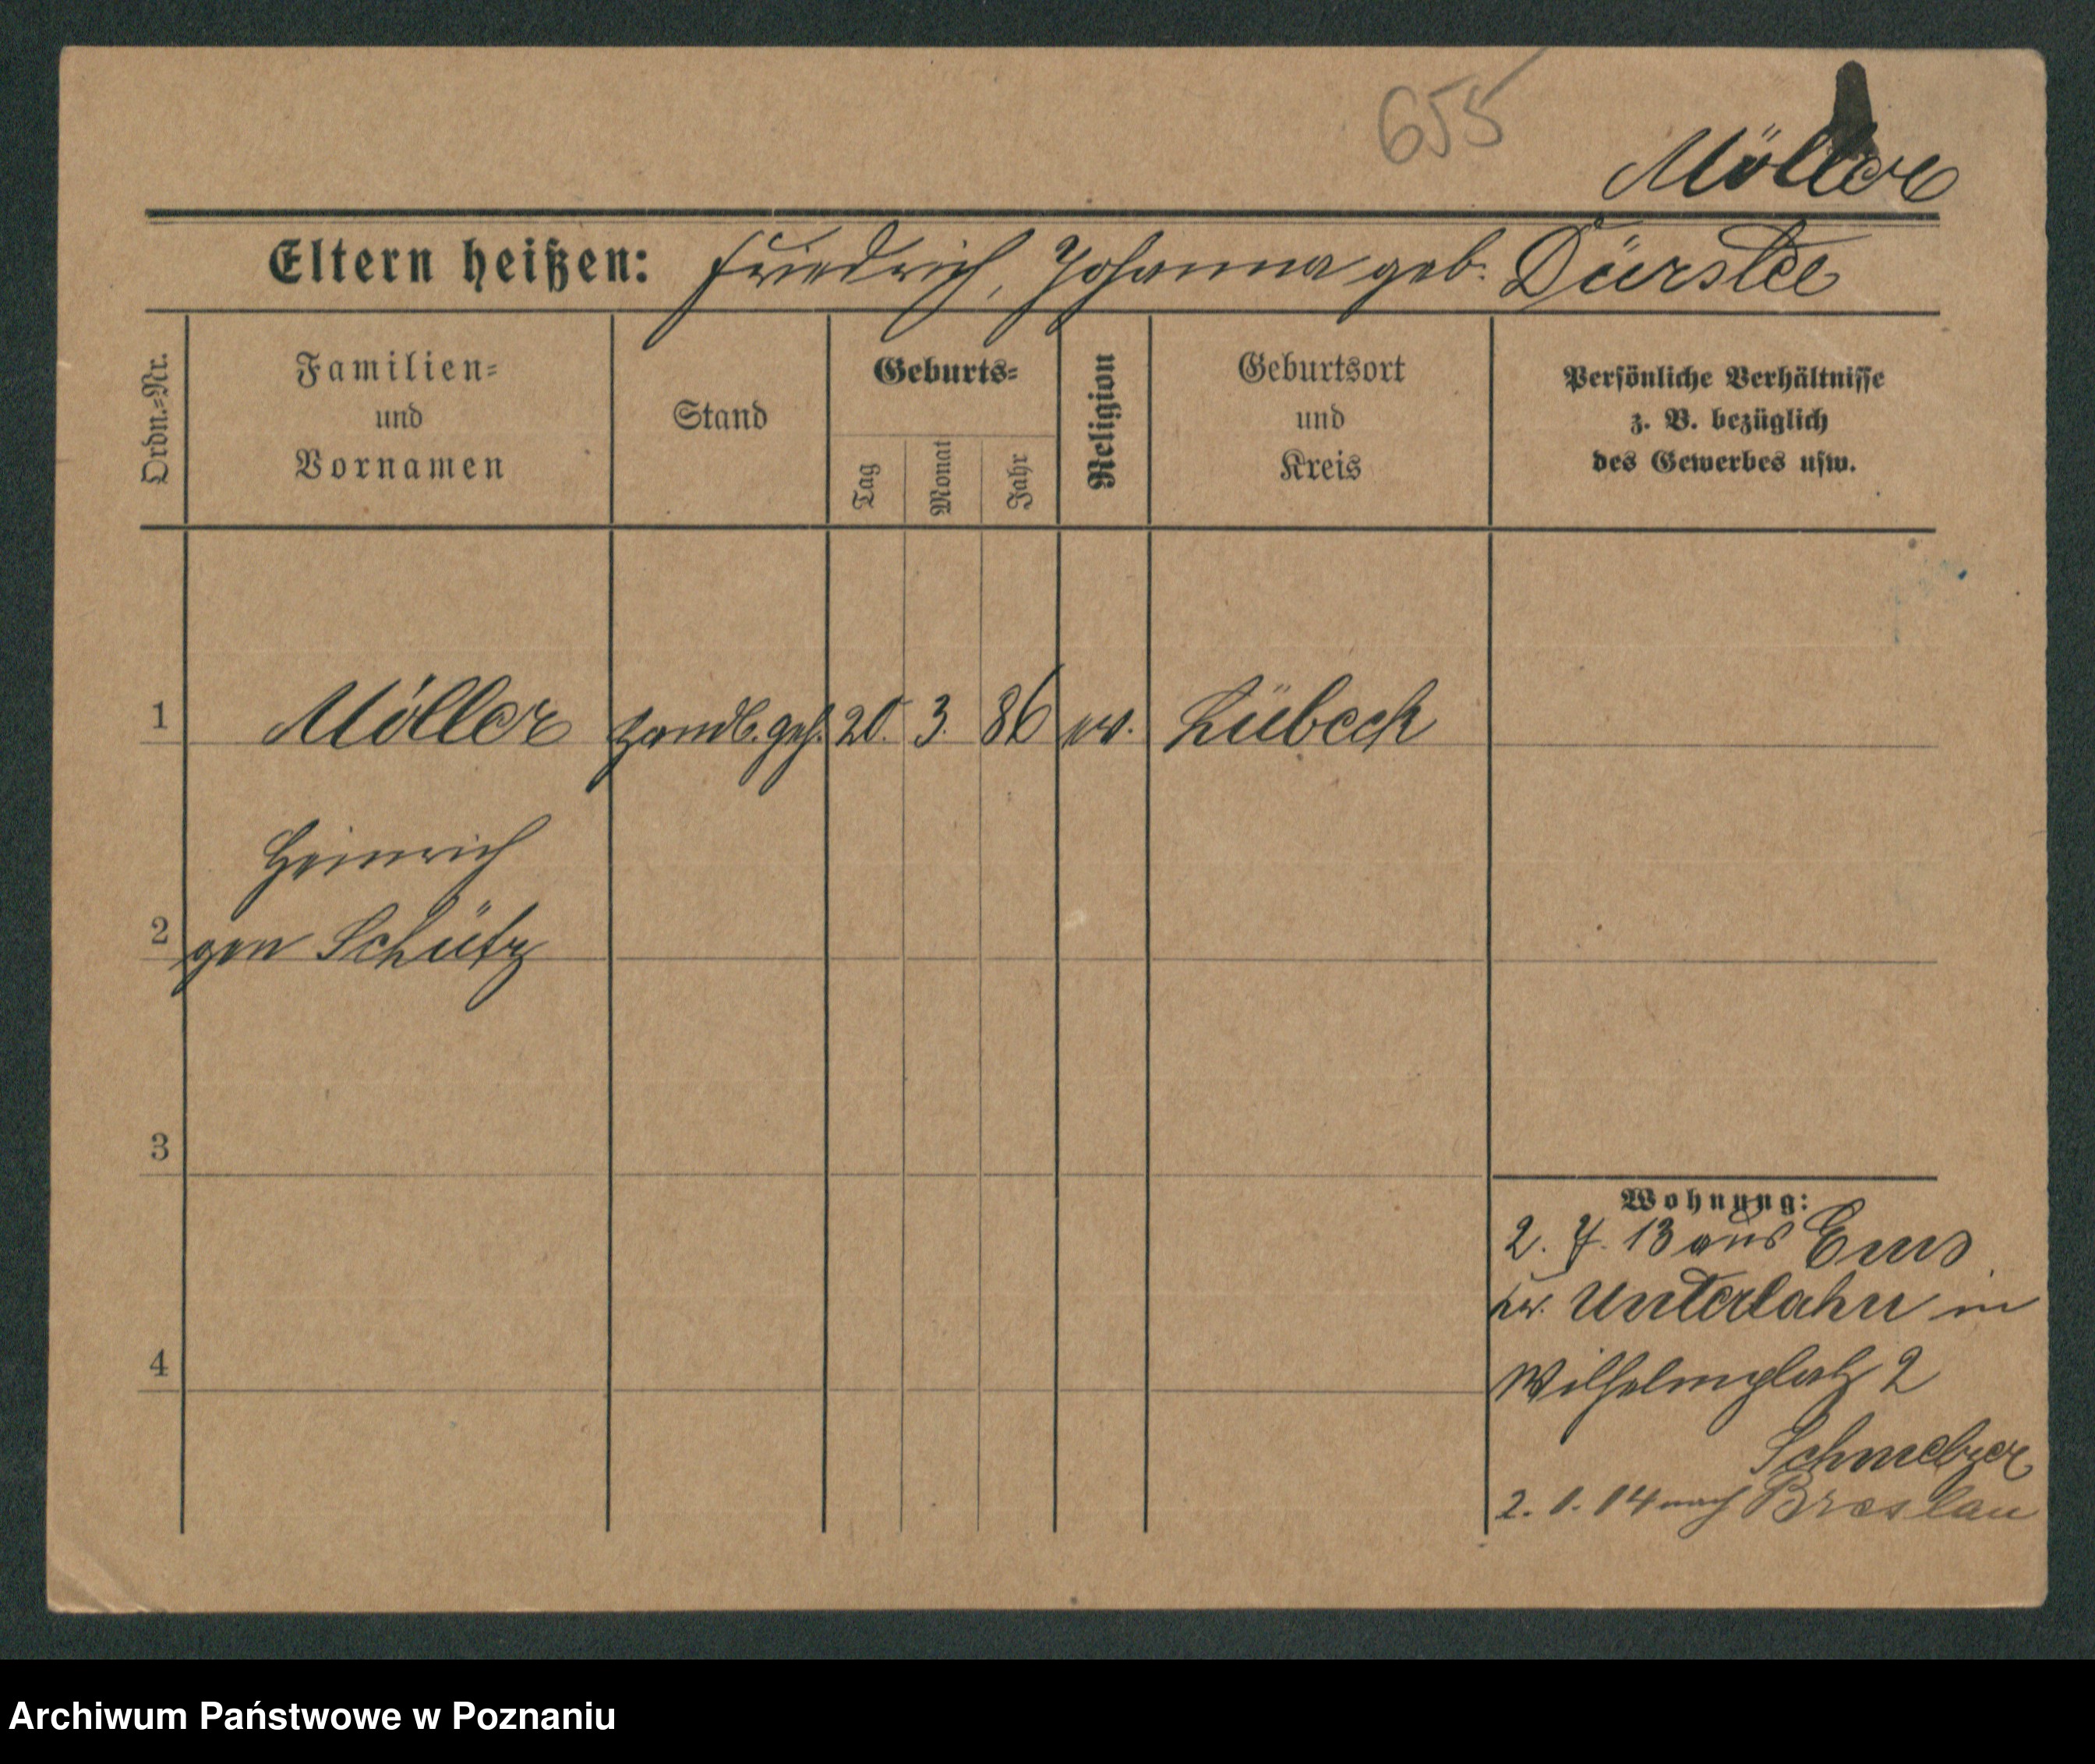 655
Möller
Eltern heißen: Friedrich, Johanna geb. Dürslee
Ordn.=Nr.
Familien=
und
Vornamen
Stand
Geburts=
Tag
Monat
Jahr
Religion
Geburtsort
und
Kreis
Persönliche Verhältnisse
z. B. bezüglich
des Gewerbes usw.
1 Möller Handl. geh. 20. 3. 86 ev. Lübeck
Heinrich
2 gen Schütz
3
Wohnung:
2. 7. 13 aus Ems
Kr. Unterlahn in
4 Wilhelmplatz 2
Schmelzer
2. 1. 14 nach Breslau
Archiwum Państwowe w Poznaniu